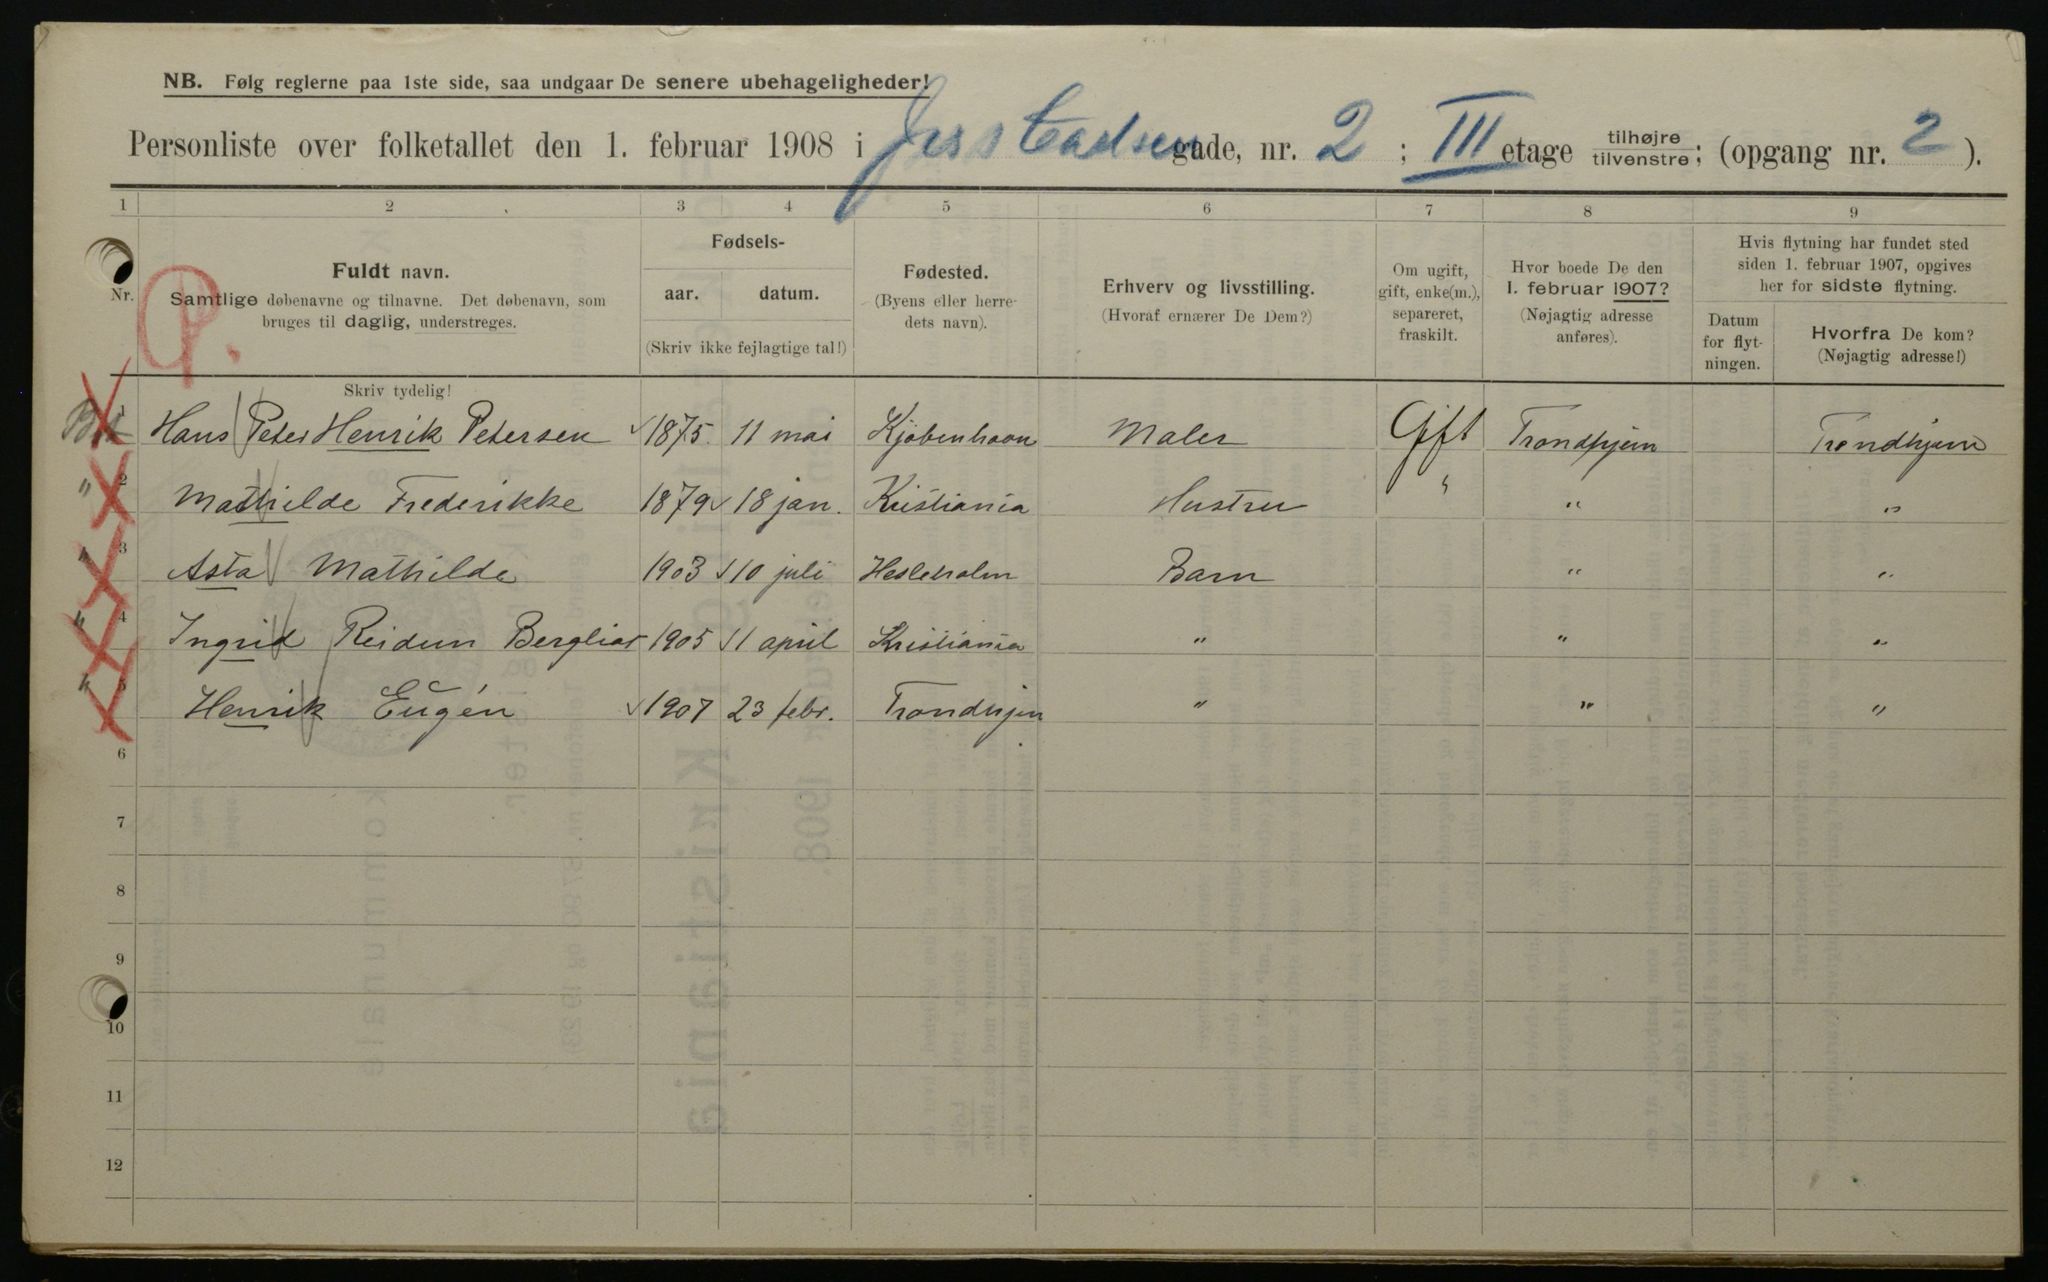 NB. Følg reglerne paa 1ste side, saa undgaar De senere ubehageligheder!
Personliste over folketallet den 1. februar 1908 i gade, nr. 2 ; III etage tilhøjre tilvenstre; (opgang nr. 2 ).
1 2 3 4 5 6 7 8 9
Nr.
Fuldt navn.
Samtlige døbenavne og tilnavne. Det døbenavn, som
bruges til daglig, understreges.
Skriv tydelig!
Fødsels-
aar. datum.
(Skriv ikke fejlagtige tal!)
Fødested.
(Byens eller herre-
dets navn).
Erhverv og livsstilling.
(Hvoraf ernærer De Dem?)
Om ugift,
gift, enke(m.),
separeret,
fraskilt.
Hvor boede De den
1. februar 1907?
(Nøjagtig adresse
anføres).
Hvis flytning har fundet sted
siden 1. februar 1907, opgives
her for sidste flytning.
Datum
for flyt-
ningen.
Hvorfra De kom?
(Nøjagtig adresse!)
P.
1 Hans Peter Henrik Petersen 1875. 11 mai Kjøbenhavn Maler Gift Trondhjem Trondhjem
" 2 Mathilde Frederikke 1879 18 jan. Kristiania " Hustru " "
" 3 Asta Mathilde 1903 10 juli Barn " "
" 4 Ingrid Reidun Bergliot 1905 11 april Kristiania " " "
" 5 Henrik Eugén 1907 23 febr. Trondhjem " " "
6
7
8
9
10
11
12